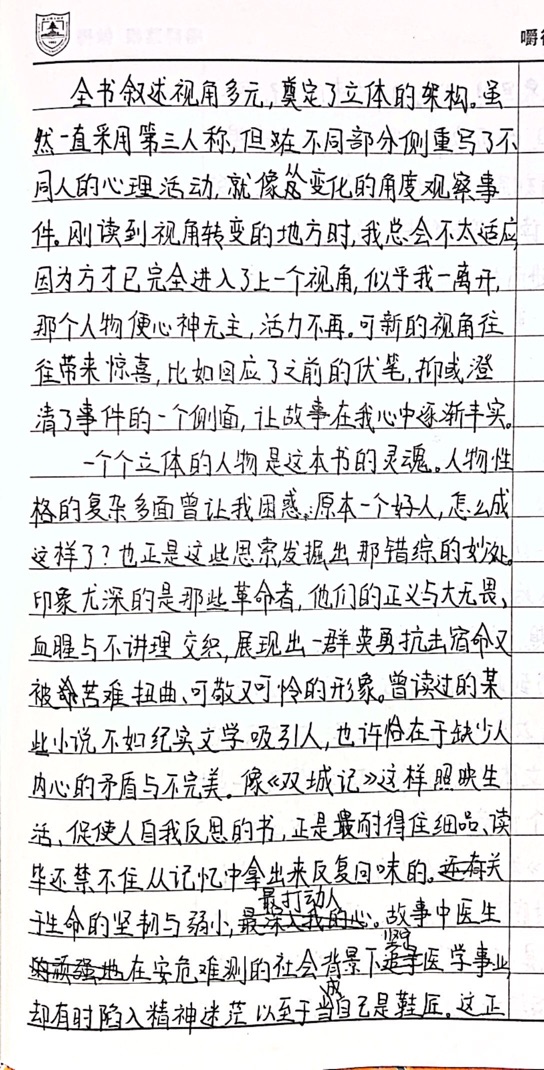 嚼得
全书叙述视角多元，奠定了立体的架构。虽
然一直采用第三人称，但在不同部分侧重写了不
同人的心理活动，就像从变化的角度观察事
件。刚读到视角转变的地方时，我总会不太适应，
因为方才已完全进入了上一个视角，似乎我一离开，
那个人物便心神无主，活力不再。可新的视角往
往带来惊喜，比如回应了之前的伏笔，抑或澄
清了事件的一个侧面，让故事在我心中逐渐丰实。
一个个立体的人物是这本书的灵魂。人物性
格的复杂多面曾让我困惑：原本一个好人，怎么成
这样了？也正是这些思索，发掘出那错综的妙处。
印象尤深的是那些革命者，他们的正义与大无畏、
血腥与不讲理交织，展现出一群英勇抗击宿命又
被苦难扭曲、可敬又可怜的形象。曾读过的某
些小说不如纪实文学吸引人，也许恰在于缺少人
内心的矛盾与不完美。像《双城记》这样照映生
活、促使人自我反思的书，正是最耐得住细品、读
毕还禁不住从记忆中拿出来反复回味的。关
于生命的坚韧与弱小，最打动人。故事中医生
在安危难测的社会背景下坚守医学事业，
却有时陷入精神迷茫以至于当成自己是鞋匠。这正